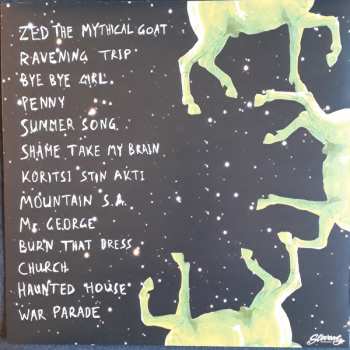 ZED THE MYTHICAL GOAT
RAVENING TRIP
BYE BYE GIRL
PENNY
SUMMER SONG
SHAME TAKE MY BRAIN
KORITSI STIN AKTI
MOUNTAIN S.A.
Mr GEORGE
BURN THAT DRESS
CHURCH
HAUNTED HOUSE
WAR PARADE